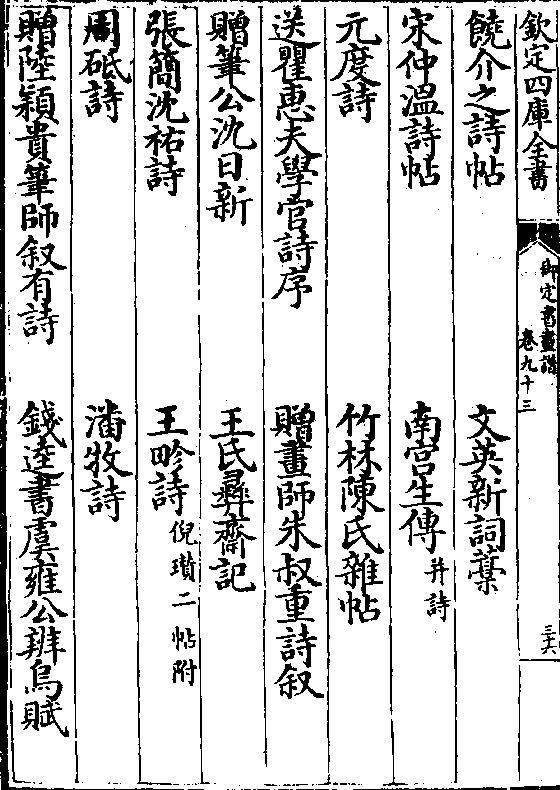 欽定四庫全書
御定書畫譜
卷九十三
三十六
饒介之詩帖　文英新詞藁
宋仲溫詩帖　南宮生傳并詩
元度詩　竹林陳氏雜帖
送瞿惠夫學官詩序　贈畫師朱叔重詩叙
贈筆公沈日新　王氏彛齋記
張簡沈祐詩　王畛詩倪瓚二帖附
周砥詩　潘牧詩
贈陸穎貴筆師叙有詩　錢逵書虞雍公辨烏賦